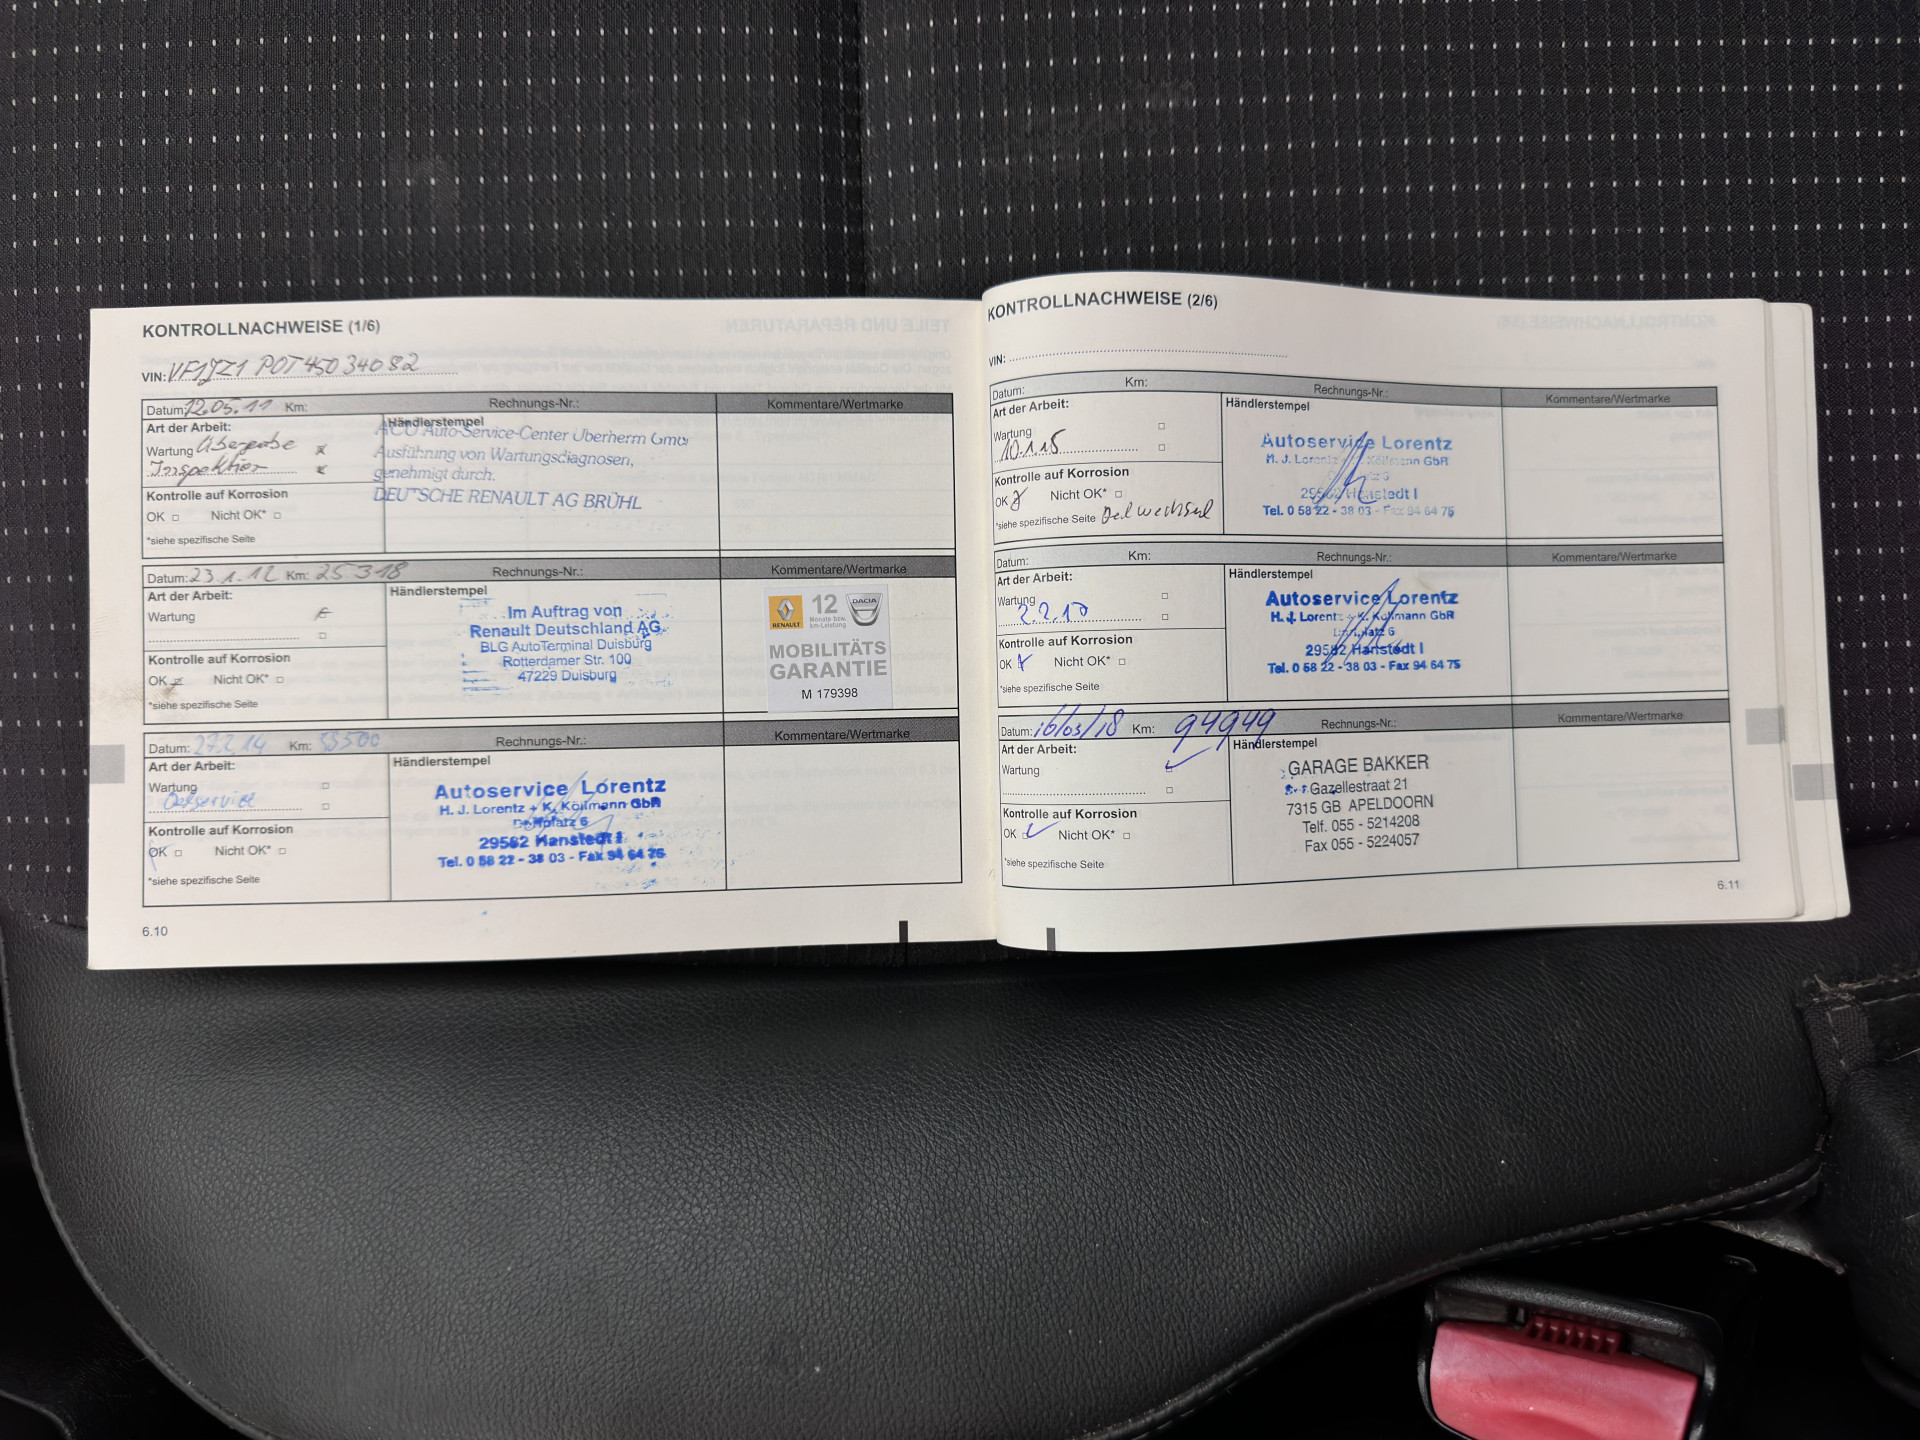 KONTROLLNACHWEISE (1/6)
VIN: VF1JZ1 POT45034082
Datum: 12.05.11 Km: Rechnungs-Nr.: Kommentare/Wertmarke
Art der Arbeit:
Wartung Übergabe
Inspektion
Kontrolle auf Korrosion
OK Nicht OK*
*siehe spezifische Seite
Händlerstempel
ACU Auto-Service-Center Überherrn GmbH
Ausführung von Wartungsdiagnosen,
genehmigt durch.
DEUTSCHE RENAULT AG BRÜHL
Datum: 23.1.12 Km: 25318 Rechnungs-Nr.: Kommentare/Wertmarke
Art der Arbeit:
Wartung
Kontrolle auf Korrosion
OK Nicht OK*
*siehe spezifische Seite
Händlerstempel
Im Auftrag von
Renault Deutschland AG
BLG AutoTerminal Duisburg
Rotterdamer Str. 100
47229 Duisburg
RENAULT 12 DACIA
Monats- bzw.
km-Leistung
MOBILITÄTS
GARANTIE
M 179398
Datum: 27.2.14 Km: 53500 Rechnungs-Nr.: Kommentare/Wertmarke
Art der Arbeit:
Wartung
Oelservice
Kontrolle auf Korrosion
OK Nicht OK*
*siehe spezifische Seite
Händlerstempel
Autoservice Lorentz
H. J. Lorentz + K. Köllmann GbR
29582 Hanstedt I
Tel. 0 58 22 - 38 03 - Fax 94 64 75
6.10
KONTROLLNACHWEISE (2/6)
VIN:
Datum: Km: Rechnungs-Nr.: Kommentare/Wertmarke
Art der Arbeit:
Wartung
10.1.15
Kontrolle auf Korrosion
OK Nicht OK*
*siehe spezifische Seite Oelwechsel
Händlerstempel
Autoservice Lorentz
H. J. Lorentz + K. Köllmann GbR
29582 Hanstedt I
Tel. 0 58 22 - 38 03 - Fax 94 64 75
Datum: Km: Rechnungs-Nr.: Kommentare/Wertmarke
Art der Arbeit:
Wartung
Kontrolle auf Korrosion
OK Nicht OK*
*siehe spezifische Seite
Händlerstempel
Autoservice Lorentz
H. J. Lorentz + K. Köllmann GbR
29582 Hanstedt I
Tel. 0 58 22 - 38 03 - Fax 94 64 75
Datum: 16/03/18 Km: 94949 Rechnungs-Nr.: Kommentare/Wertmarke
Art der Arbeit:
Wartung
Kontrolle auf Korrosion
OK Nicht OK*
*siehe spezifische Seite
Händlerstempel
GARAGE BAKKER
Gazellestraat 21
7315 GB APELDOORN
Telf. 055 - 5214208
Fax 055 - 5224057
6.11